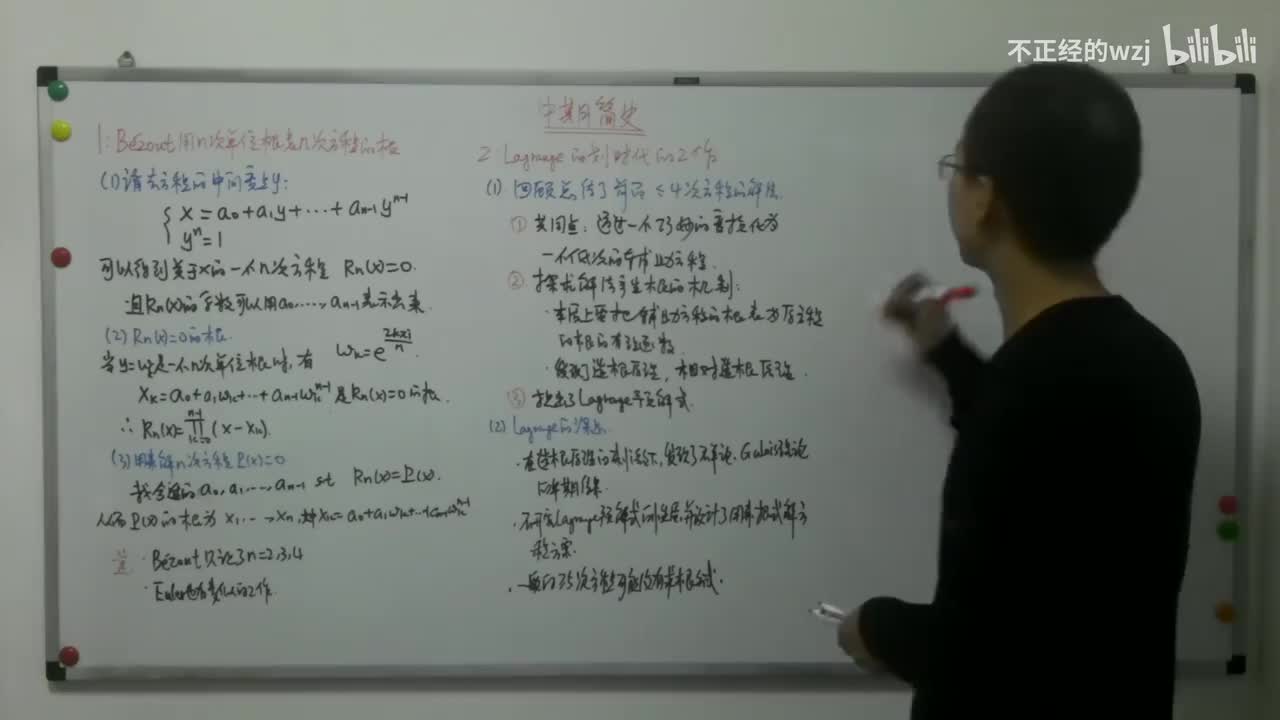 不正经的wzj bilibili
中期简史
1. Bezout用n次单位根表n次方程的根
(1)请看方程的中间变量y:
{ x = a₀+a₁y+⋯+aₙ₋₁yⁿ⁻¹
yⁿ=1
可以得到关于x的一个n次方程 Rₙ(x)=0.
且Rₙ(x)的系数可以用a₀,⋯,aₙ₋₁表示出来.
(2) Rₙ(x)=0的根.
当y=ωₖ是一个n次单位根时,有 ωₖ=e^(2kπi/n).
xₖ=a₀+a₁ωₖ+⋯+aₙ₋₁ωₖⁿ⁻¹是Rₙ(x)=0的根.
∴ Rₙ(x)=∏_{k=0}^{n-1}(x-xₖ).
(3)用来解n次方程P(x)=0
找合适的a₀,a₁,⋯,aₙ₋₁ st Rₙ(x)=P(x).
从而P(x)的根为x₁,⋯,xₙ,其中xₖ=a₀+a₁ωₖ+⋯+aₙ₋₁ωₖⁿ⁻¹
注 · Bezout只论了n=2,3,4
· Euler也有类似的工作.
2. Lagrange的划时代的工作
(1) 回顾总结了前面≤4次方程的解法.
① 共同点:通过一个巧妙的变换化为
一个低次的辅助方程.
② 探求解法产生根的机制:
· 本质上要把辅助方程的根表为原方程
的根的有理函数.
· 发现了送根原理,相对送根原理.
③ 提出了Lagrange预解式.
(2) Lagrange的
· 在送根原理的 下,发现了群论、Galois理论
的早期结果.
· 不可约Lagrange预解式的性质,并设计了用来 解方
程方案.
· 一般的≥5次方程可能没有求根公式.